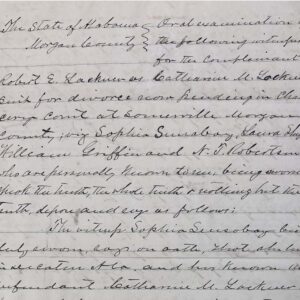 The State of Alabama } Oral examination
Morgan County } the following witnesses
for the Complainant
Robert E. Lackner vs Catharine M. Lackner
Suit for divorce now pending in Chan
cery Court at Somerville Morgan
County, viz Sophia Sunsabay, Laura
William Griffin and N. T. Robertson
who are personally known to me, being sworn
speak the truth, the whole truth & nothing but the
truth, depose and say as follows:
The witness Sophia Sunsabay
duly sworn says on oath, that
in Decatur Ala, and has known
defendant Catharine M. Lackner